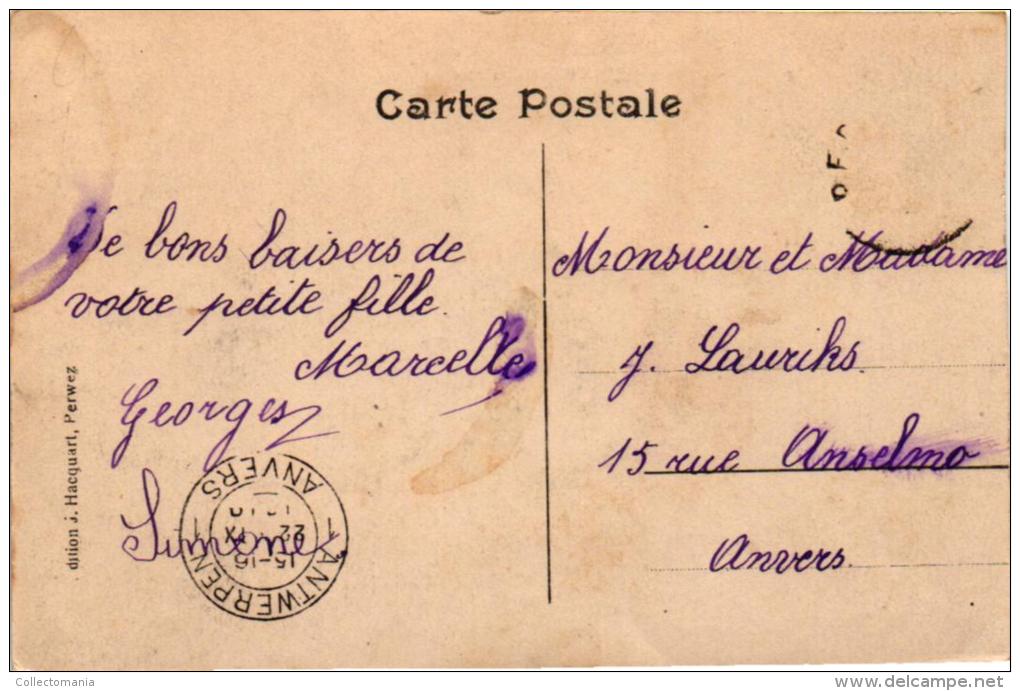 Carte Postale
De bons baisers de
votre petite fille.
Marcelle
Georges
Simone
Monsieur et Madame
J. Lauriks
15 rue Anselmo
Anvers
dition J. Hacquart, Perwez
ANTWERPEN 1
15-16
22 IX
1 ANVERS
Collectomania
delcampe.net